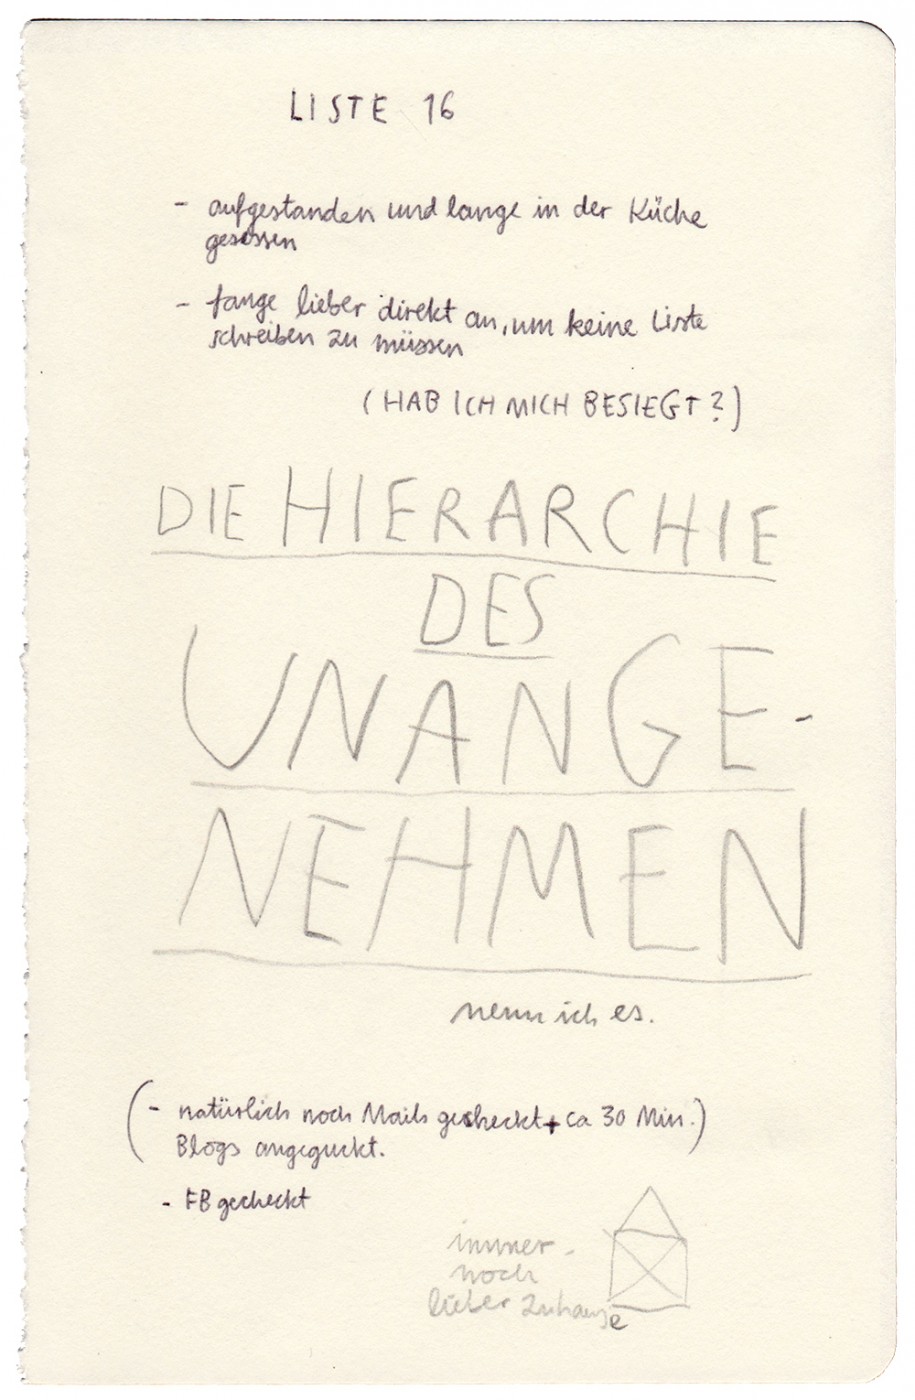 LISTE 16
- aufgestanden und lange in der Küche
gesessen
- fange lieber direkt an, um keine Liste
schreiben zu müssen
(HAB ICH MICH BESIEGT?)
DIE HIERARCHIE
DES
UNANGE-
NEHMEN
nenn ich es.
(- natürlich noch Mails gecheckt + ca 30 Min.)
Blogs angeguckt.
- FB gecheckt
immer-
noch
lieber zuhause